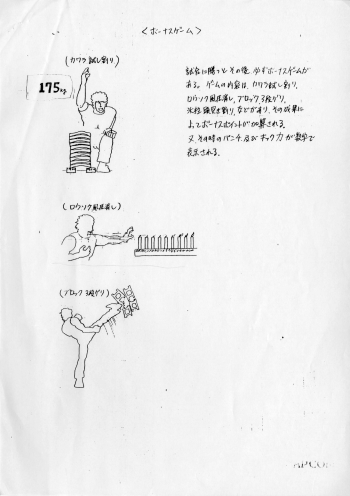 ＜ボーナスゲーム＞
(カワラ試し割り)
175kg
試合に勝つと その後、必ずボーナスゲームが
ある。ゲームの内容は、カワラ試し割り、
ロウソク風圧消し、ブロック3段ゲリ、
氷柱頭突き割り、などがあり、その成果に
よってボーナスポイントが加算される。
又、その時のパンチ、及び キック力が数字で
表示される。
(ロウソク風圧消し)
(ブロック3段ゲリ)